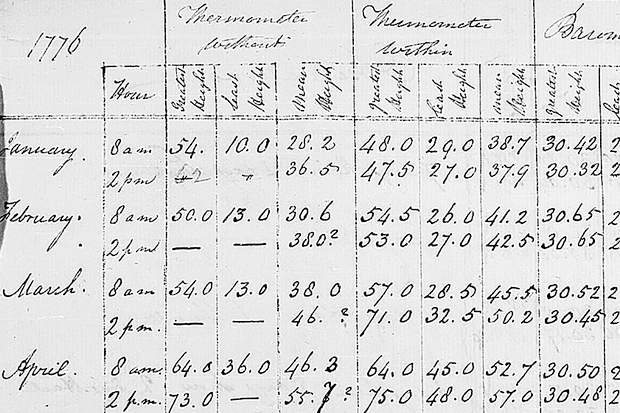 1776 Thermometer without Thermometer within Barom
Hour Greatest Height Least Height Mean Height greatest Height Least Height mean Height greatest Height Least
January. 8 am 54. 10.0 28.2 48.0 29.0 38.7 30.42 2
2 pm 36.5 47.5 27.0 37.9 30.32 2
February. 8 am 50.0 13.0 30.6 54.5 26.0 41.2 30.65 2
2 pm — — 38.0? 53.0 27.0 42.5 30.65 2
March. 8 am 54.0 13.0 38.0 57.0 28.5 45.5 30.52 2
2 pm. — — 46.? 71.0 32.5 50.2 30.45 2
April. 8 am. 64.0 36.0 46.3 64.0 45.0 52.7 30.50 2
2 pm 73.0 — 55.7? 75.0 48.0 57.0 30.48 2